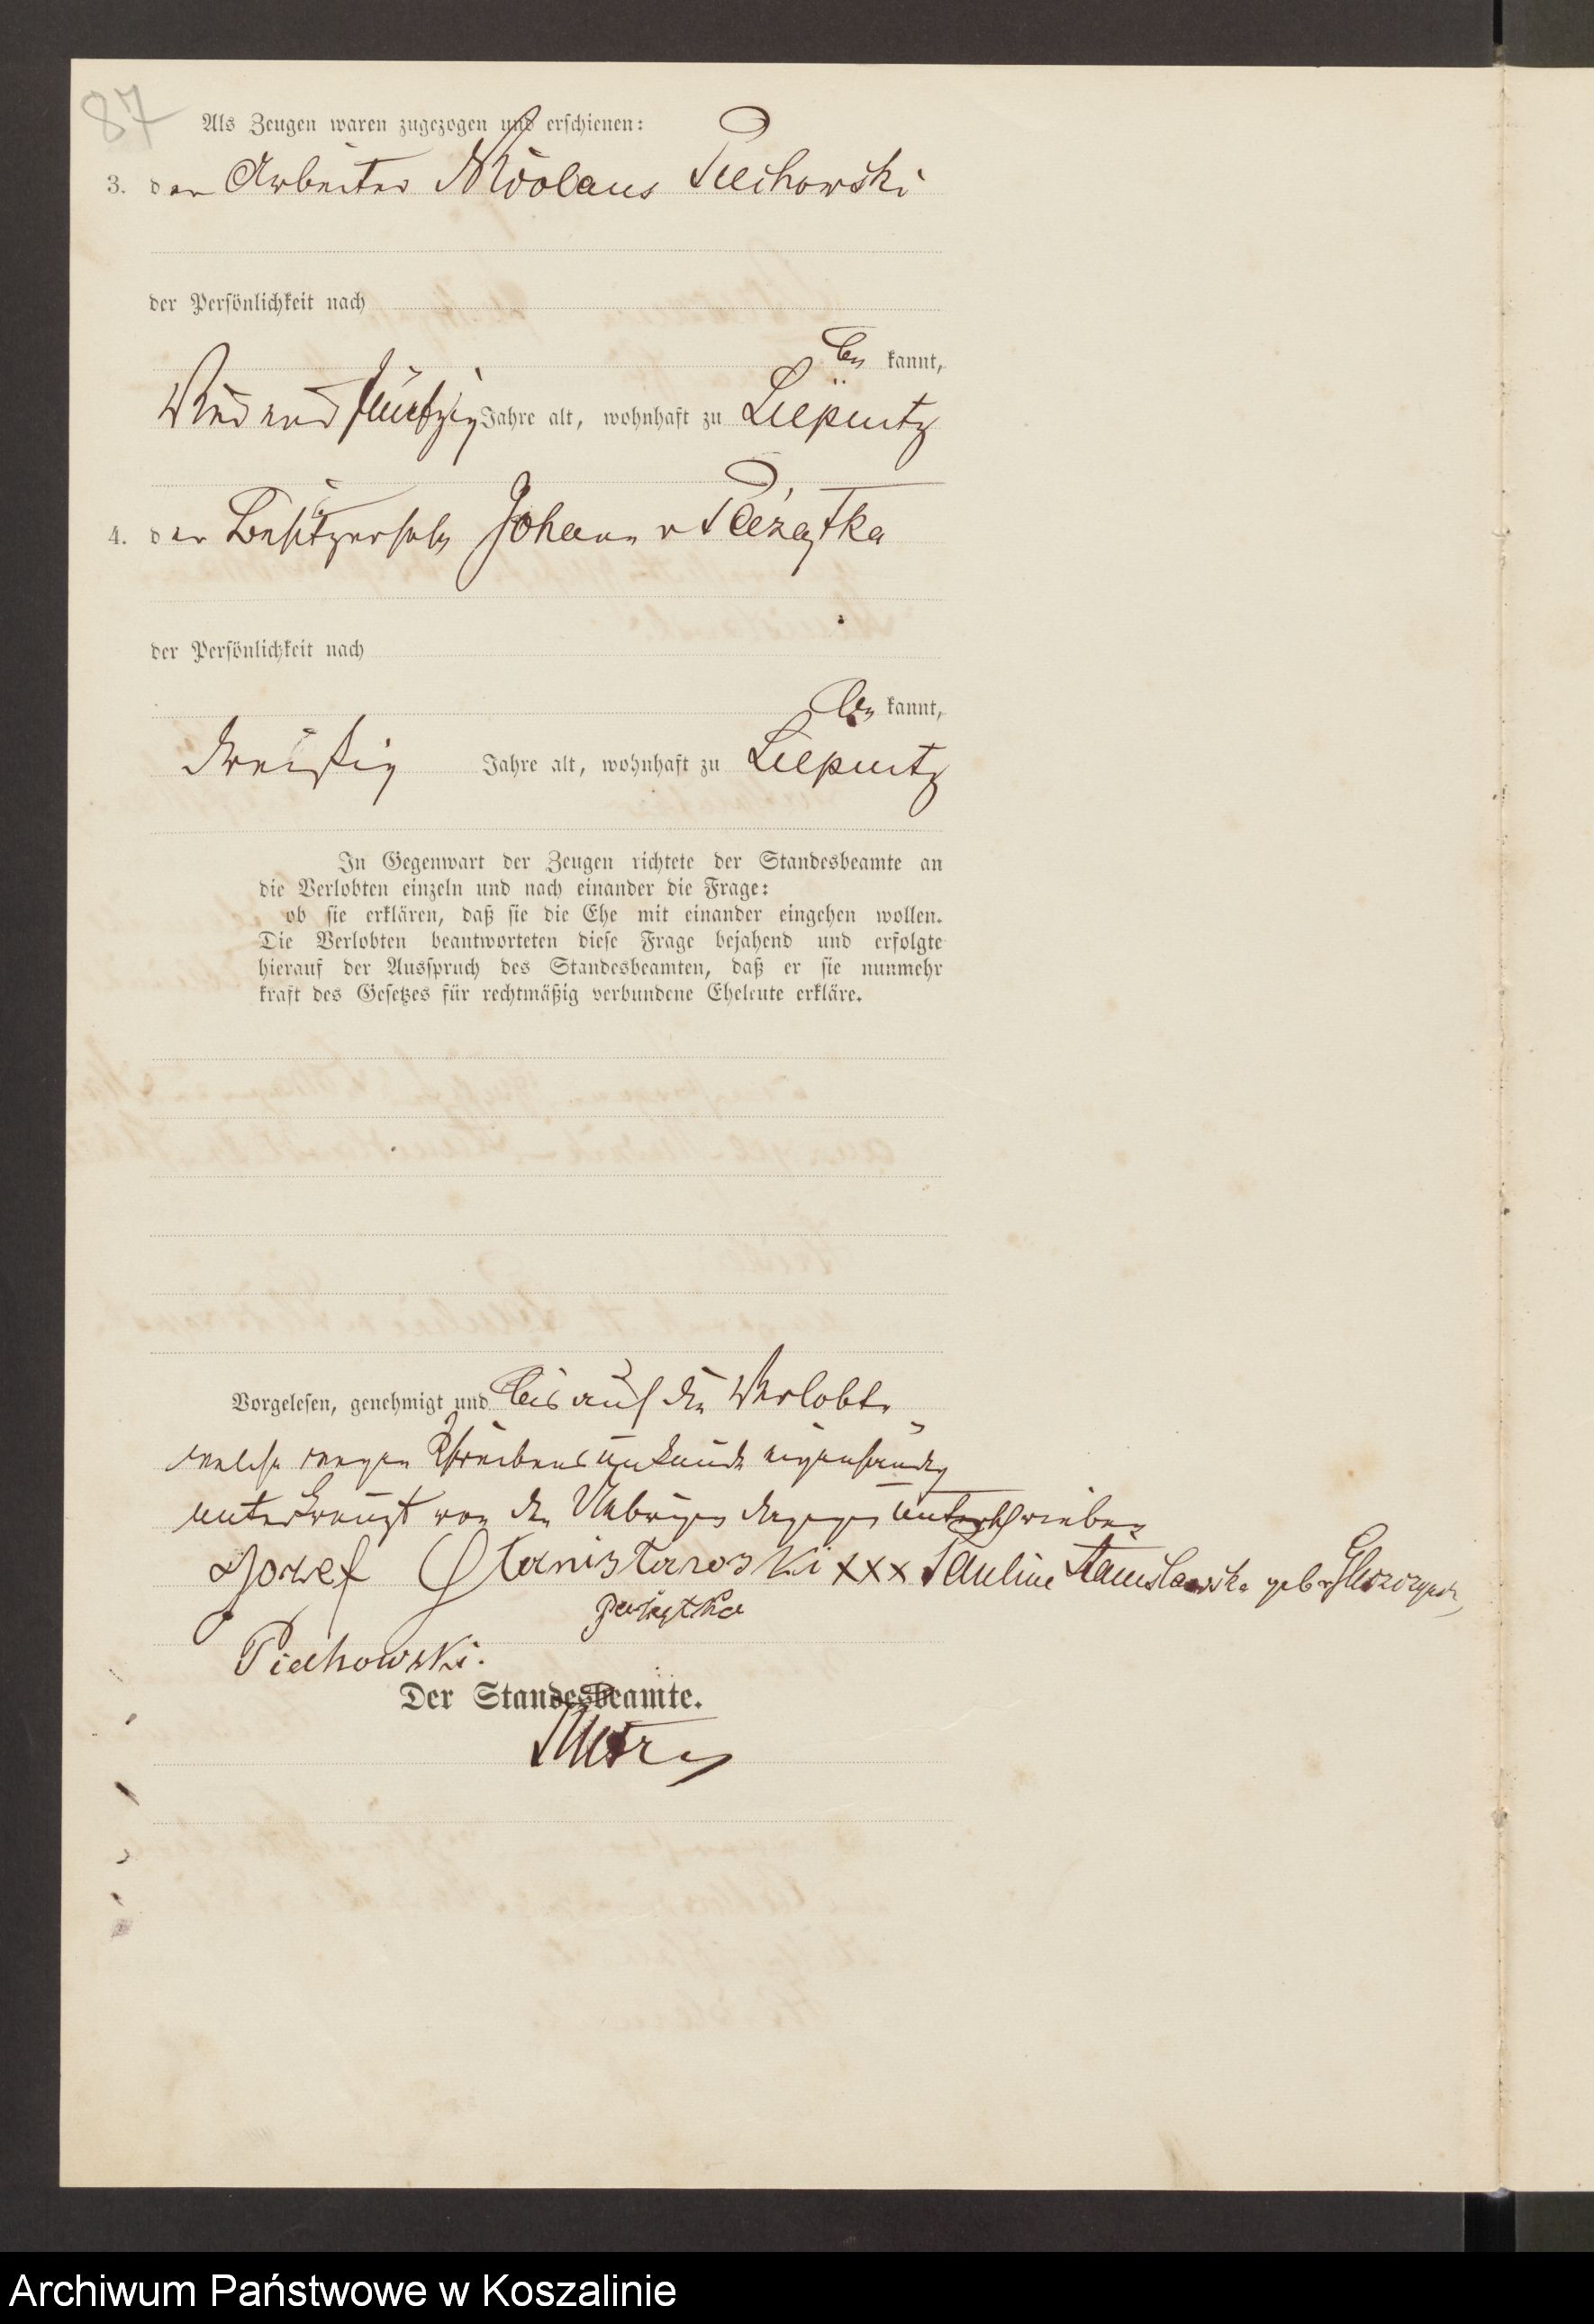 87
Als Zeugen waren zugezogen und erschienen:
3. der Arbeiter Nicolaus Piechowski
der Persönlichkeit nach
be kannt,
und fünfzig Jahre alt, wohnhaft zu Liepnitz
4. der Besitzersohn Johann v Piężątka
der Persönlichkeit nach
be kannt,
dreißig Jahre alt, wohnhaft zu Liepnitz
In Gegenwart der Zeugen richtete der Standesbeamte an
die Verlobten einzeln und nach einander die Frage:
ob sie erklären, daß sie die Ehe mit einander eingehen wollen.
Die Verlobten beantworteten diese Frage bejahend und erfolgte
hierauf der Ausspruch des Standesbeamten, daß er sie nunmehr
kraft des Gesetzes für rechtmäßig verbundene Eheleute erkläre.
Vorgelesen, genehmigt und bis auf die Verlobte
welche wegen Schreibensunkunde eigenhändig
unterkreuzt von den Uebrigen dagegen unterschrieben
Jozef Stanisławski xxx Pauline Stanislawska geb v
Piechowski.
Der Standesbeamte.
Archiwum Państwowe w Koszalinie